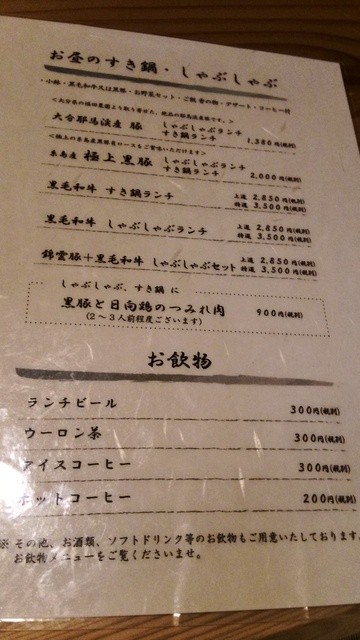 お昼のすき鍋・しゃぶしゃぶ
・小鉢・黒毛和牛又は黒豚・お野菜セット・ご飯・香の物・デザート・コーヒー付
大分耶馬渓産 豚 しゃぶしゃぶランチ
すき鍋ランチ 1,380円(税別)
糸島産 極上黒豚 しゃぶしゃぶランチ
すき鍋ランチ 2,000円(税別)
黒毛和牛 すき鍋ランチ 上選 2,850円(税別)
特選 3,500円(税別)
黒毛和牛 しゃぶしゃぶランチ 上選 2,850円(税別)
特選 3,500円(税別)
錦雲豚+黒毛和牛 しゃぶしゃぶセット 上選 2,850円(税別)
特選 3,500円(税別)
しゃぶしゃぶ、すき鍋 に
黒豚と日向鶏のつみれ肉 900円(税別)
(2~3人前程度ございます)
お飲物
ランチビール 300円(税別)
ウーロン茶 300円(税別)
アイスコーヒー 300円(税別)
ホットコーヒー 200円(税別)
※ その他、お酒類、ソフトドリンク等のお飲物もご用意いたしております。
お飲物メニューをご覧くださいませ。